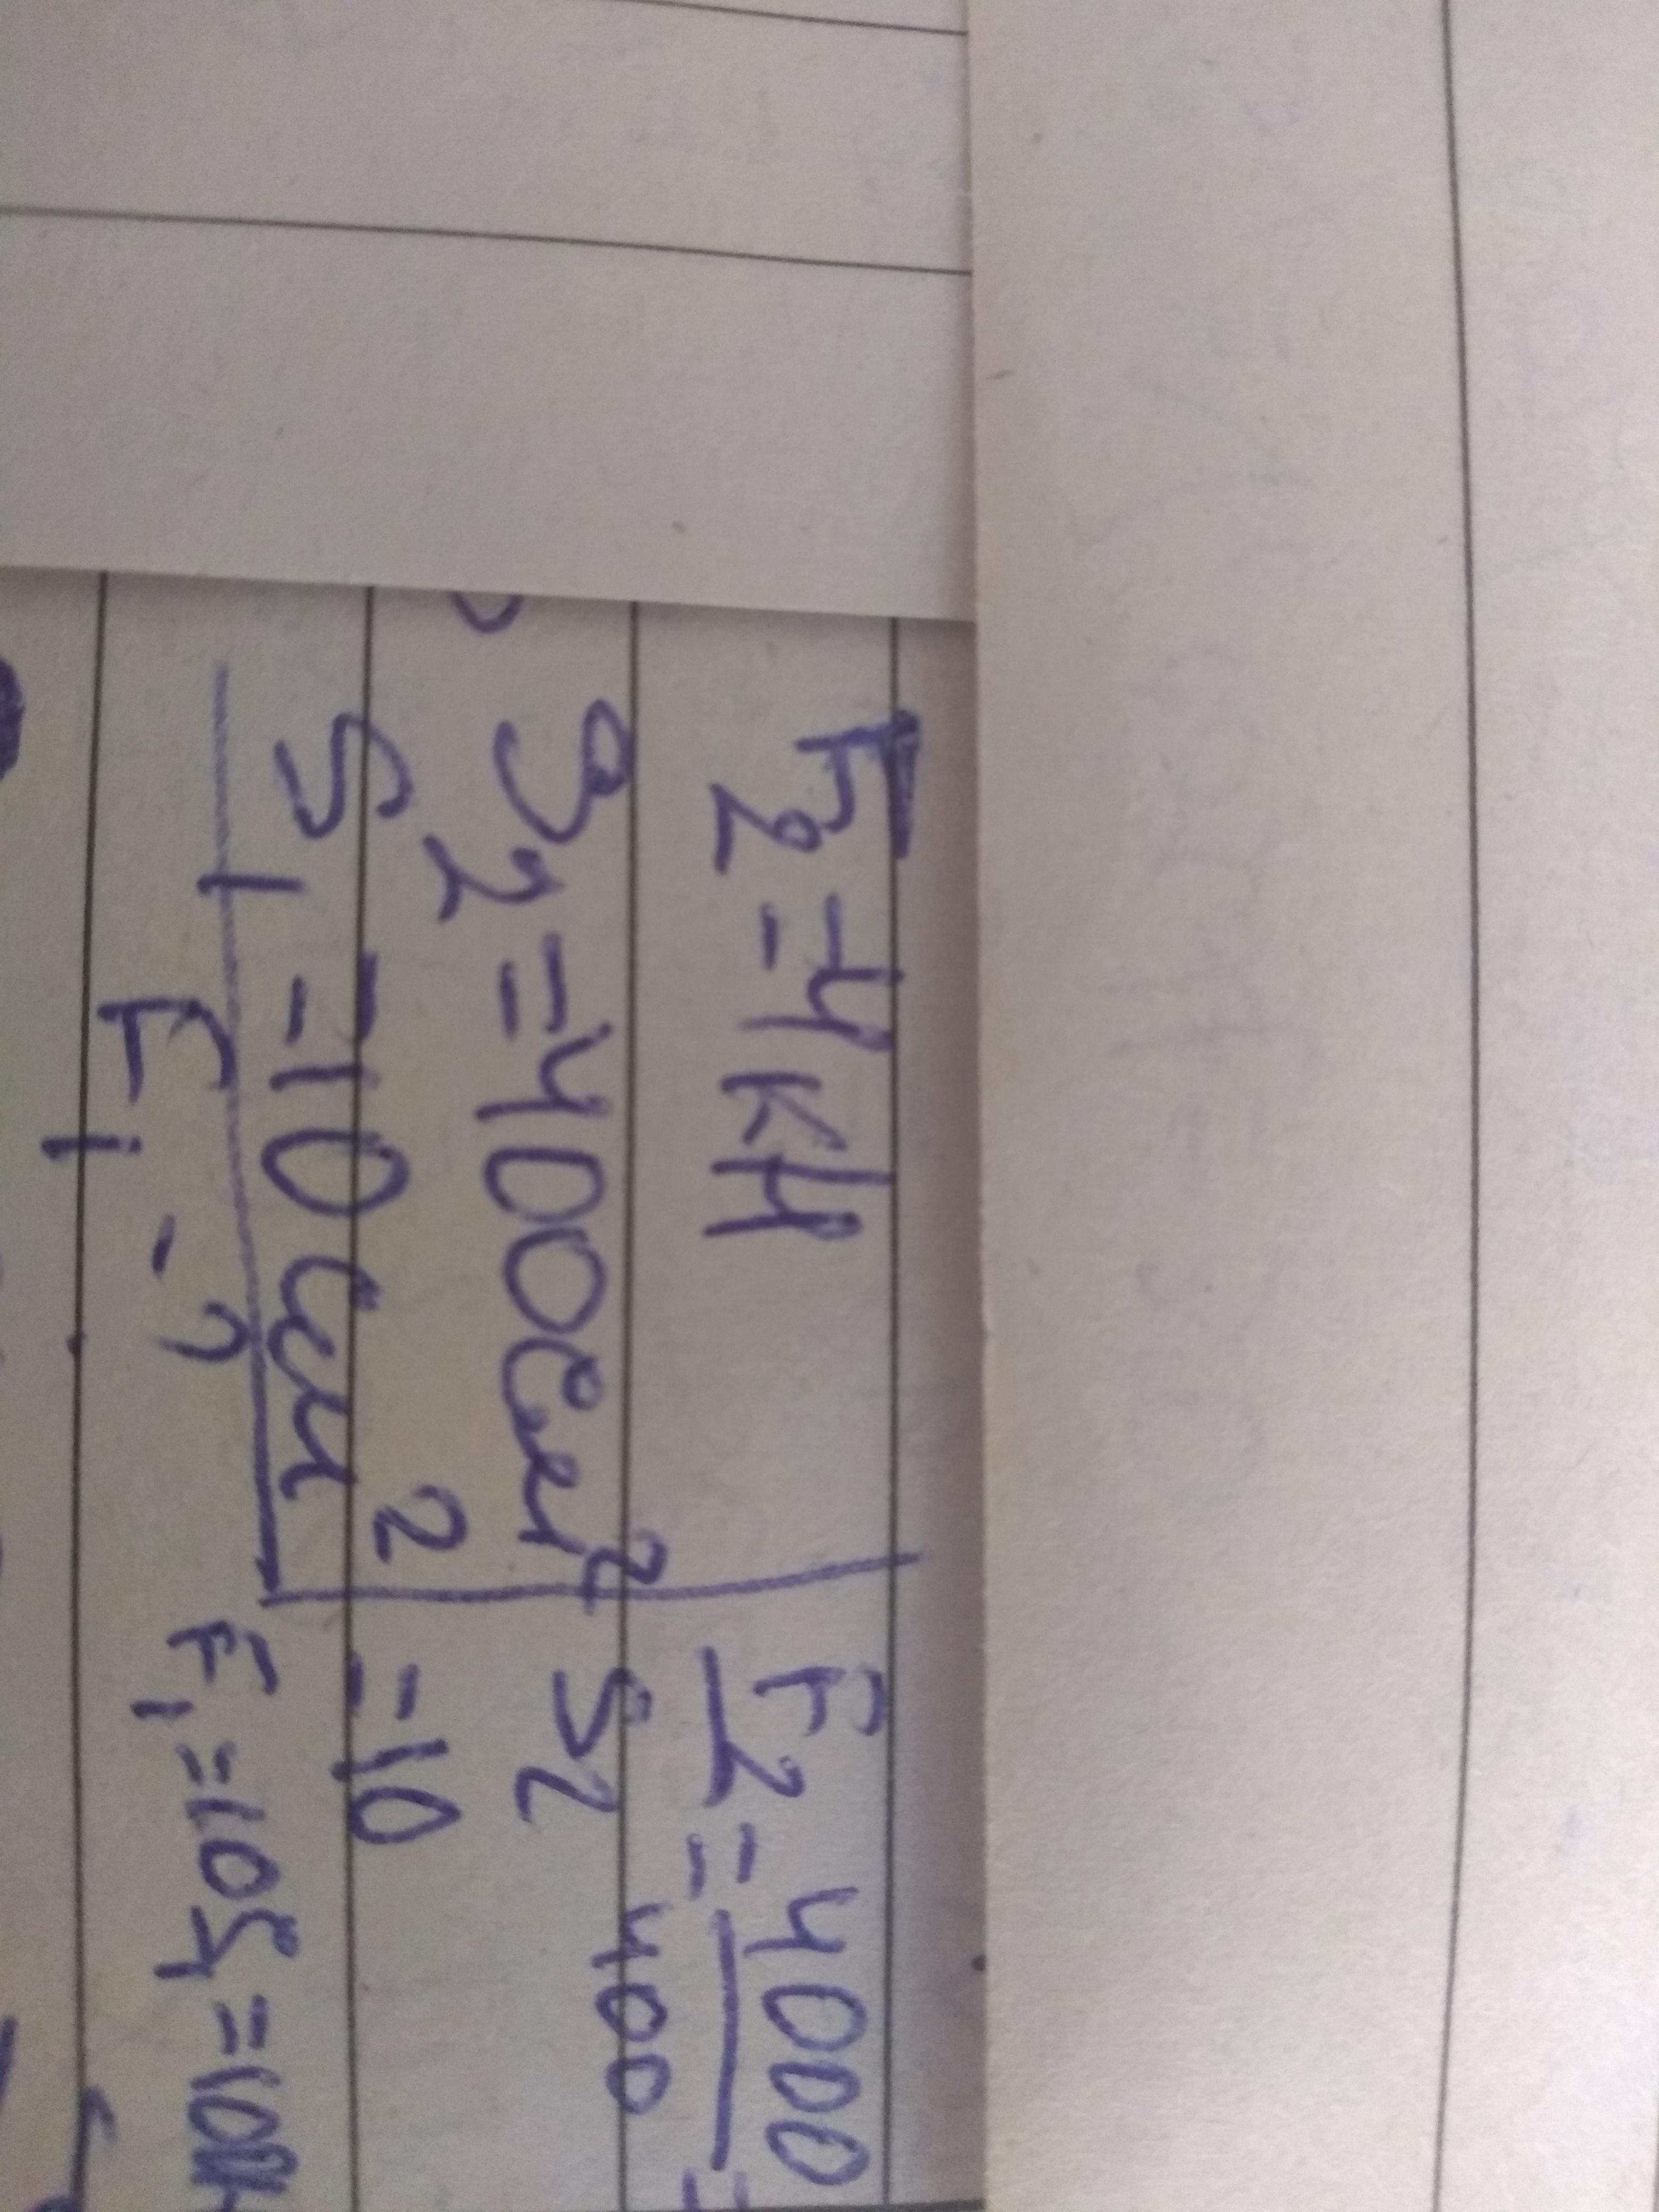 F2 = 4 кН
S2 = 400 см²
S1 = 10 см²
F1 - ?
F2 = 4000 =
S2 400
= 10
F1 = 10S1 = 100Н